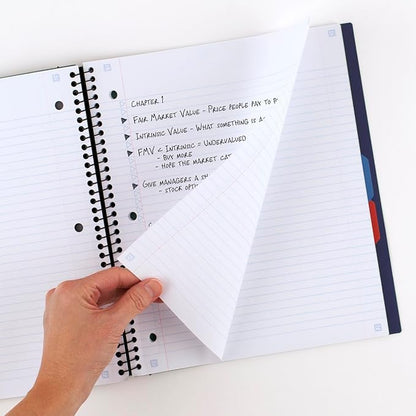 Chapter 1
Fair Market Value - Price people pay to
Intrinsic Value - What something is a
FMV < Intrinsic = Undervalued
- Buy more
- Hope the market
Give managers a
- Stock